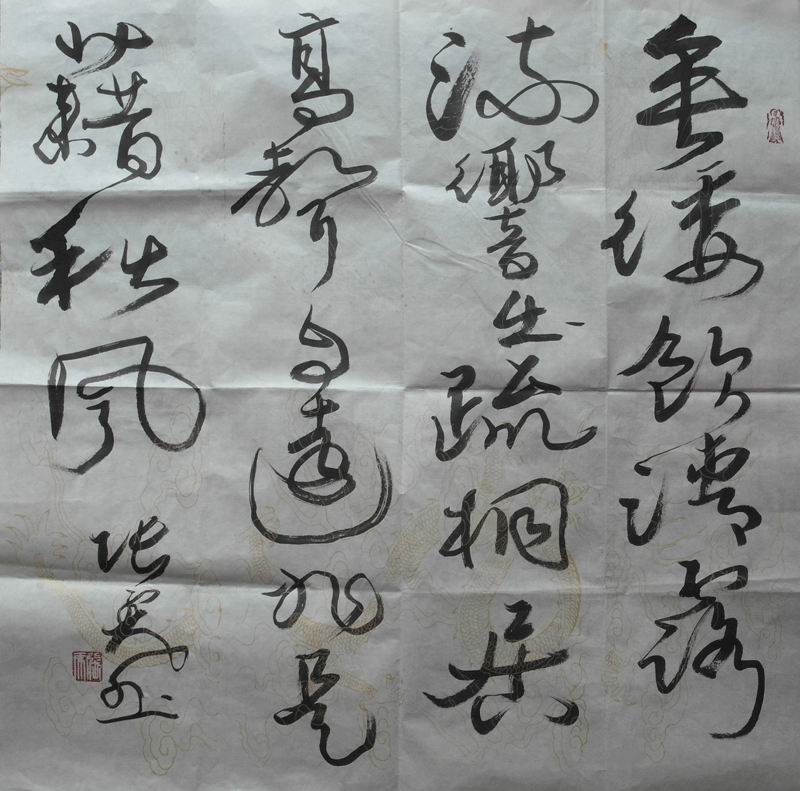 垂緌飲清露
流響出疏桐居
高聲自遠非是
藉秋風 张